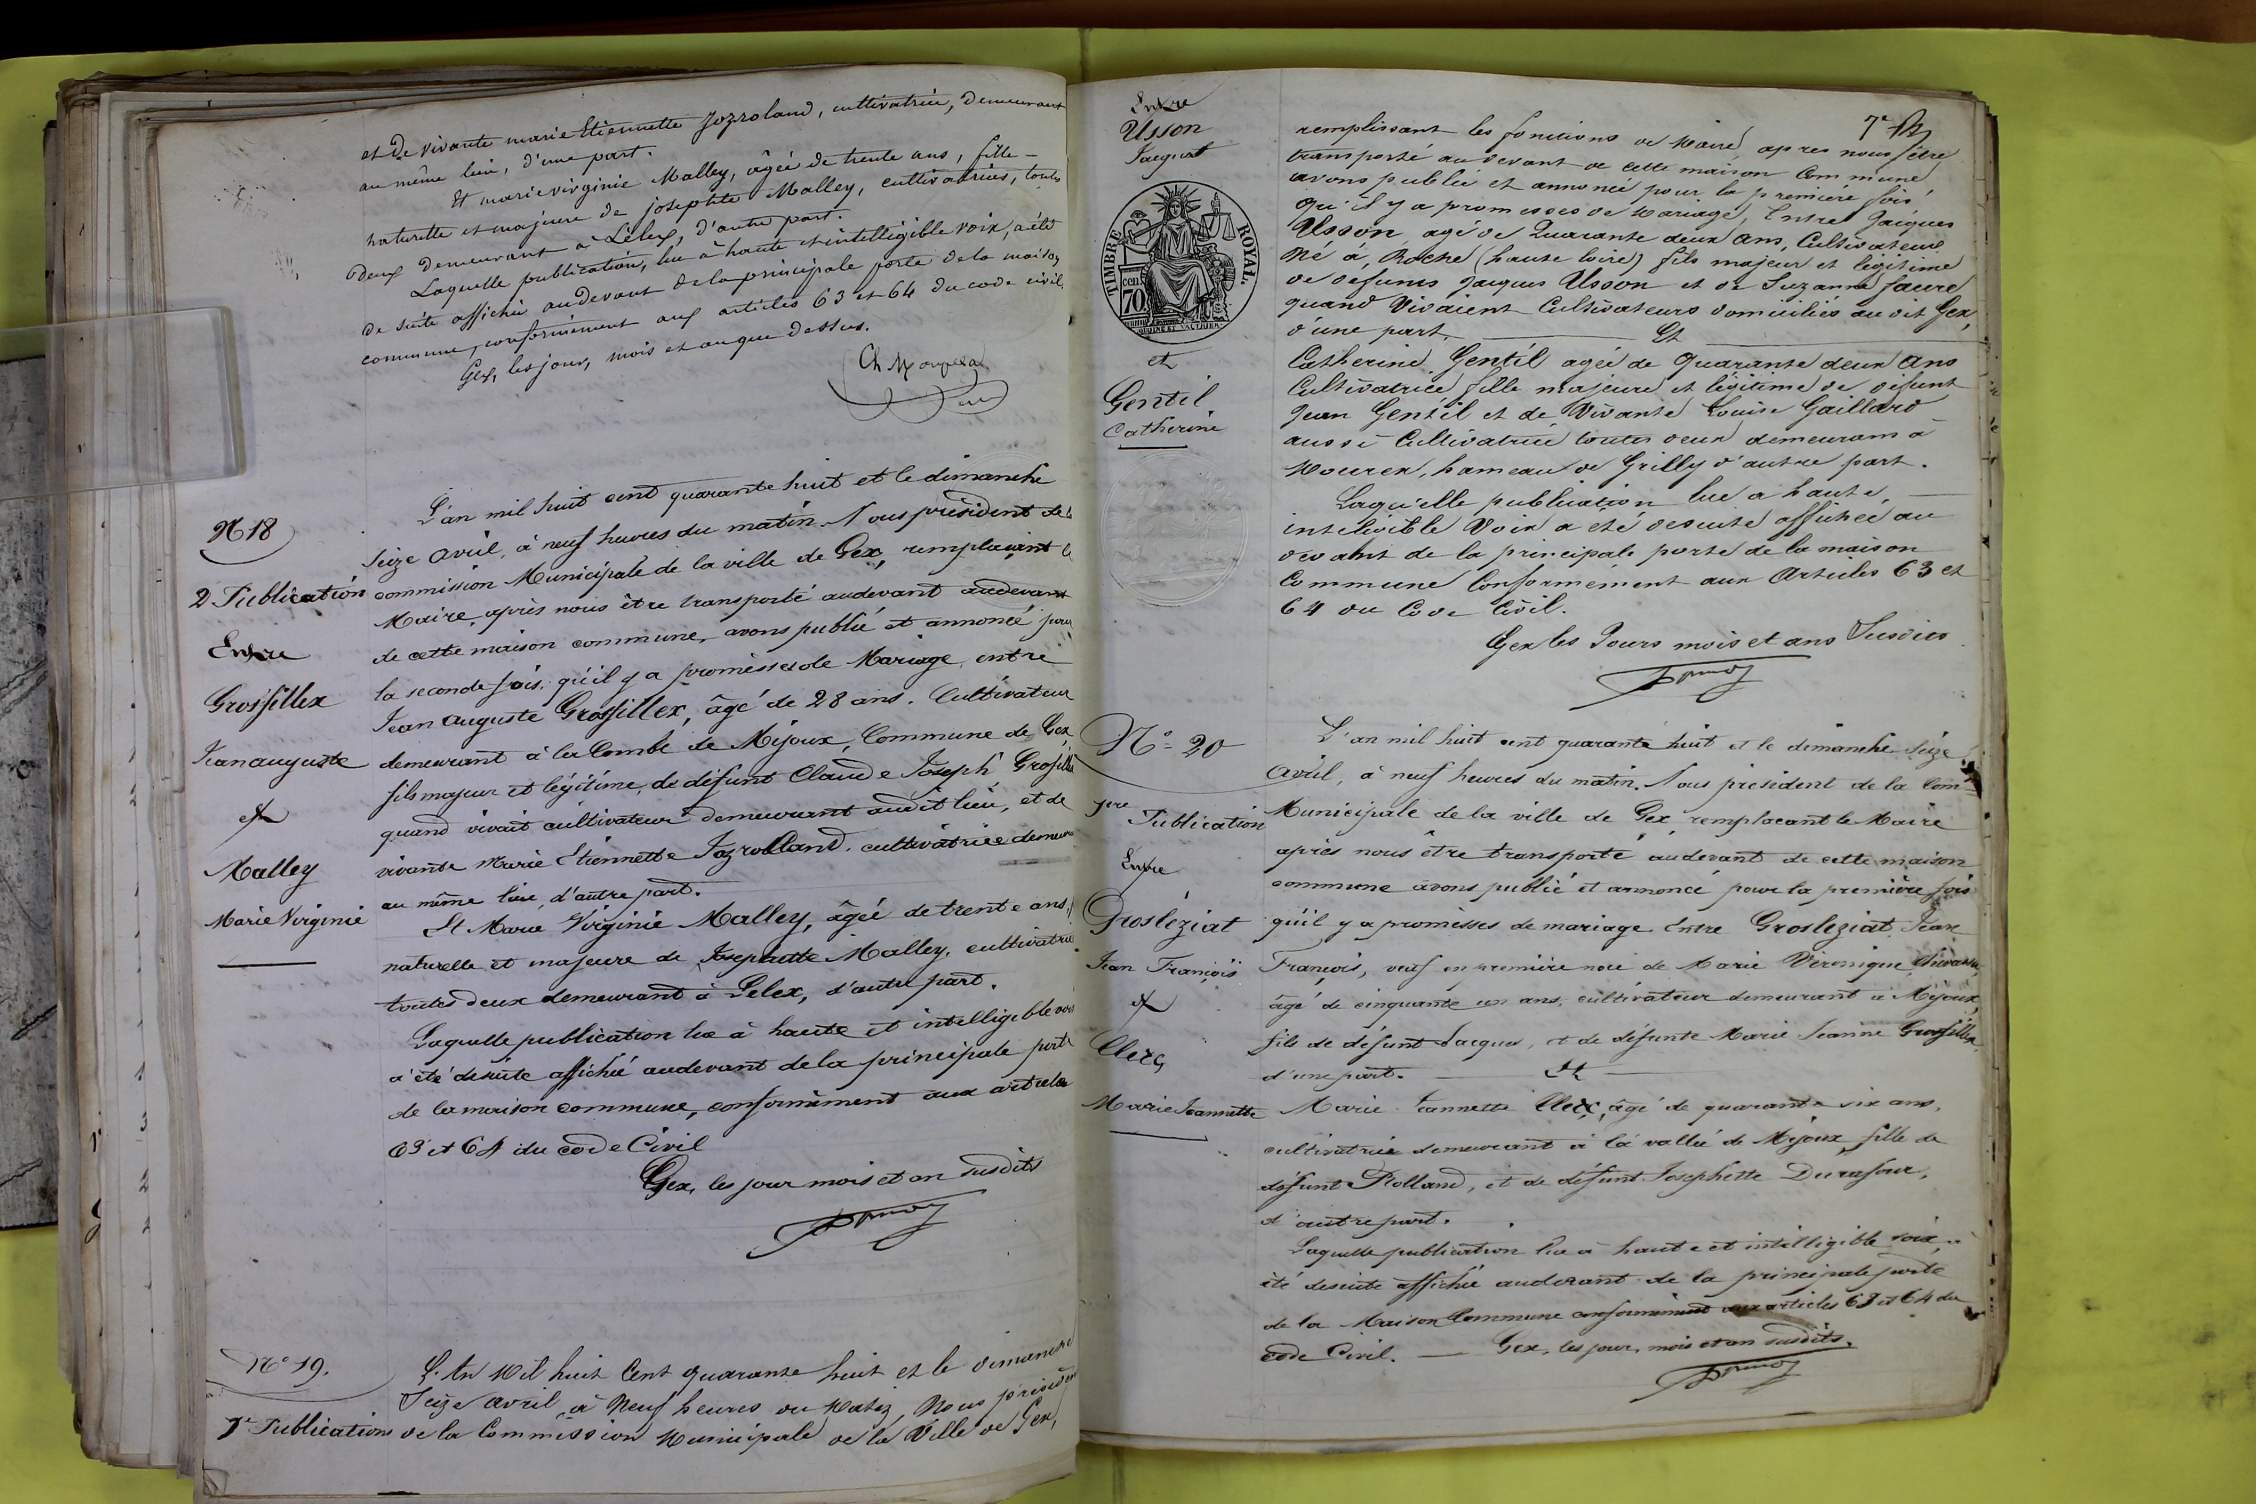 et de vivante marie Etiennette Jozroland, cultivatrice, demeurant
au même lieu, d'une part.
Et marie virginie Malley, âgée de trente ans, fille
naturelle et majeure de josephte Malley, cultivatrices, toutes
deux demeurant à Lélex, d'autre part.
Laquelle publication, lue à haute et intelligible voix, a été
de suite affichée audevant de la principale porte de la maison
commune, conformément aux articles 63 et 64 du code civil.
Gex, les jour, mois et an que dessus.
N 18
2 Publication
Entre
Grosfillex
Jean auguste
et
Malley
Marie Virginie
L'an mil huit cent quarante huit et le dimanche
seize avril, à neuf heures du matin. Nous président de la
commission Municipale de la ville de Gex, remplaçant le
Maire, après nous être transporté audevant audevant
de cette maison commune, avons publié et annoncé pour
la seconde fois, qu'il y a promesses de Mariage, entre
Jean Auguste Grosfillex, âgé de 28 ans. Cultivateur
demeurant à la Combe de Mijoux, Commune de Gex,
fils majeur et légitime, de défunt Claude Joseph Grosfillex
quand vivait cultivateur demeurant audit lieu, et de
vivante Marie Etiennette Jozrolland, cultivatrice demeu
au même lieu, d'autre part.
Et Marie Virginie Malley, âgée de trente ans,
naturelle et majeure de Josephtte Malley, cultivatrice
toutes deux demeurant à Lelex, d'autre part.
Laquelle publication lue à haute et intelligible voix
a été desuite affichée audevant de la principale porte
de la maison commune, conformément aux articles
63 et 64 du code Civil
Gex, les jour mois et an susdits
N° 19.
1e Publications
L'An Mil huit Cent quarante huit et le Dimanche
Seize avril, à Neuf heures du Matin, Nous présiden
de la Commission Municipale de la Ville de Gex,
7e
Entre
Usson
Jacques
TIMBRE ROYAL
70 cen
et
Gentil
Catherine
remplissant les fonctions de Maire, apres nous être
transporté au devant de cette maison Commune
avons publié et annoncé pour la première fois
qu'il y a promesses de Mariage, Entre Jacques
Usson, agé de Quarante deux ans, Cultivateur
Né à, Roche (haute loire) fils majeur et légitime
de defunts Jacques Usson et de Suzanne faure
quand Vivaient Cultivateurs domiciliés au dit Gex,
d'une part, Et
Catherine Gentil agée de quarante deux Ans
Cultivatrice fille majeure et légitime de défunt
Jean Gentil et de Vivante Louise Gaillard
aussi Cultivatrice toutes deux demeurans à
Mourex, hameau de Grilly d'autre part.
Laqu'elle publication lue a haute,
inteligible Voix a eté desuite affichée au
devant de la principale porte de la maison
Commune Conformément aux Articles 63 et
64 du Code Civil.
Gex les Jours mois et ans Susdits
N° 20
1re Publication
Entre
Grosléziat
Jean François
et
Clerc
Marie Jeannette
L'an mil huit cent quarante huit et le dimanche seize
avril, à neuf heures du matin. Nous président de la Com
Municipale de la ville de Gex, remplacant le Maire
après nous être transporté audevant de cette maison
commune avons publié et annoncé pour la première fois
qu'il y a promèsses de mariage Entre Grosleziat Jean
François, veuf en première noce de Marie Véronique
âgé de cinquante un ans, cultivateur demeurant à Mijoux,
fils de défunt Jacques, et de défunte Marie Jeanne Grosfillex,
d'une part. Et
Marie Jeannette Clerc, âgé de quarante six ans,
cultivatrice demeurant à la vallée de Mijoux, fille de
défunt Rolland, et de défunt Josephette Durafour,
d'autre part.
Laquelle publication lue à haute et intelligible voix, a
été desuite affichée audevant de la principale porte
de la Maison Commune conformément aux articles 63 et 64 du
code Civil. Gex, les jour, mois et an susdits.